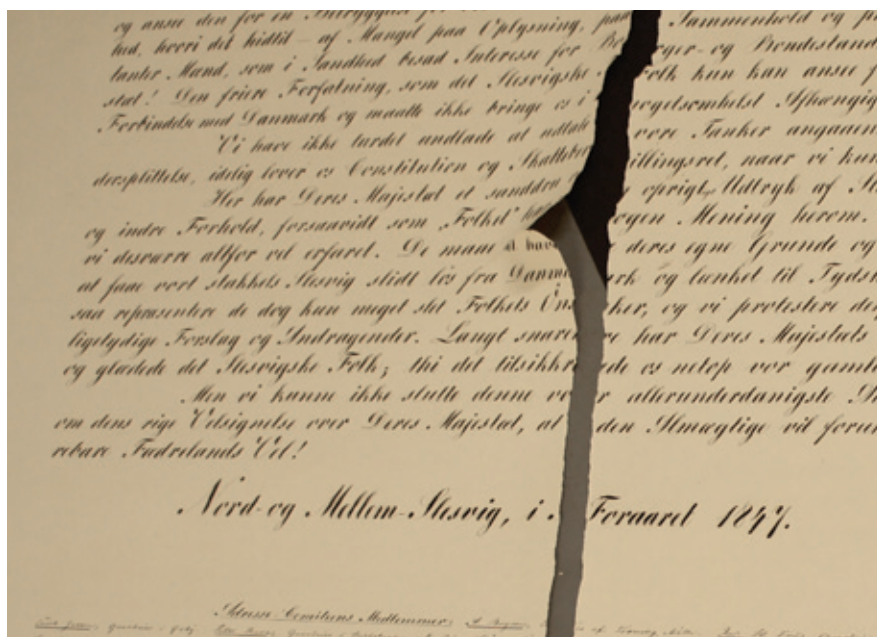 og ansee den for en
hed, hvori det hidtil – af Mangel paa Oplysning, paa Sammenhold og
tanter Mand, som i Sandhed besad Interesse for Borger- og Bondestand
stal! Den friere Forfatning, som det Slesvigske Folk kun kan ansee f
Forbindelse med Danmark og maatte ikke bringe os i nogetsomhelst Afhængig
Vi have ikke turdet undlade at udtale vore Tanker angaaen
dersplittelse, idelig lover os Constitution og Skattebevillingsret, naar vi kun
Her har Deres Majestæt et sanddru og oprigt. Udtryk af
og indre Forhold, forsaavidt som „Folket" har nogen Mening herom.
vi desværre altfor vel erfaret. De maae at have deres egne Grunde og
at faae vort stakkels Slesvig slidt løs fra Danmark og lænket til Tydsk
saa repræsentere de dog kun meget slet Folkets Ønsker, og vi protestere de
ligetydige Forslag og Andragender. Langt snarere har Deres Majestæts
og glædede det Slesvigske Folk; thi det tilsikkrede os netop vor gamle
Men vi kunne ikke slutte denne vor allerunderdanigste
om dens rige Velsignelse over Deres Majestæt, at den Almægtige vil forun
rebare Fædrelands Vel!
Nord- og Mellem-Slesvig, i Foraaret 1847.
Adresse-Comiteens Medlemmer: